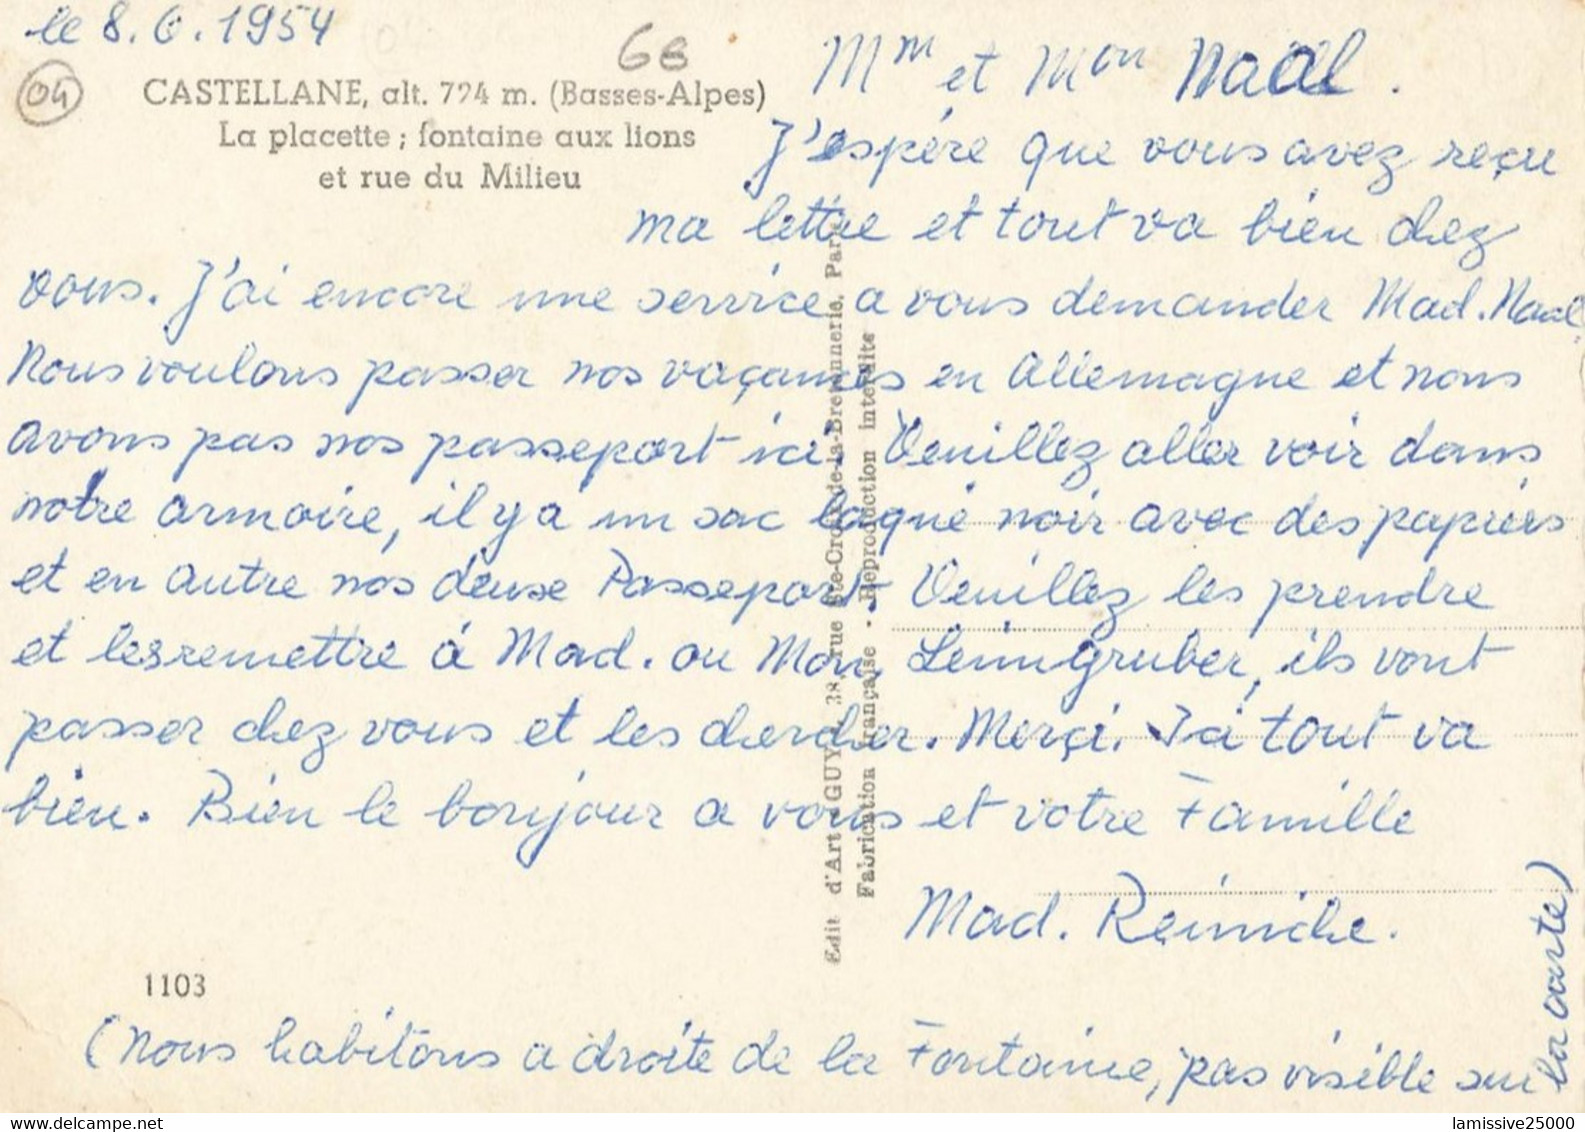 le 8.6.1954
04
68
CASTELLANE, alt. 724 m. (Basses-Alpes)
La placette ; fontaine aux lions
et rue du Milieu
Mm et Mon Naal.
J'espére que vous avez reçu
ma lettre et tout va bien chez
vous. J'ai encore une service a vous demander Mad. Naal
Nous voulons passer nos vaçances en Allemagne et nous
avons pas nos passeport ici. Veuillez aller voir dans
notre armoire, il y a un sac laqué noir avec des papiers
et en autre nos deuse Passeport. Veuillez les prendre
et les remettre á Mad. ou Mon. Leimgruber, ils vont
passer chez vous et les chercher. Merçi. Ici tout va
bien. Bien le bonjour a vous et votre Famille
Mad. Reiniche.
1103
(Nous habitons a droite de la Fontaine, pas visible sur
la carte)
Edit d'Art GUY, 38, rue Ste-Croix-de-la-Bretonnerie, Paris
Fabrication française - Reproduction interdite
delcampe.net
lamissive25000